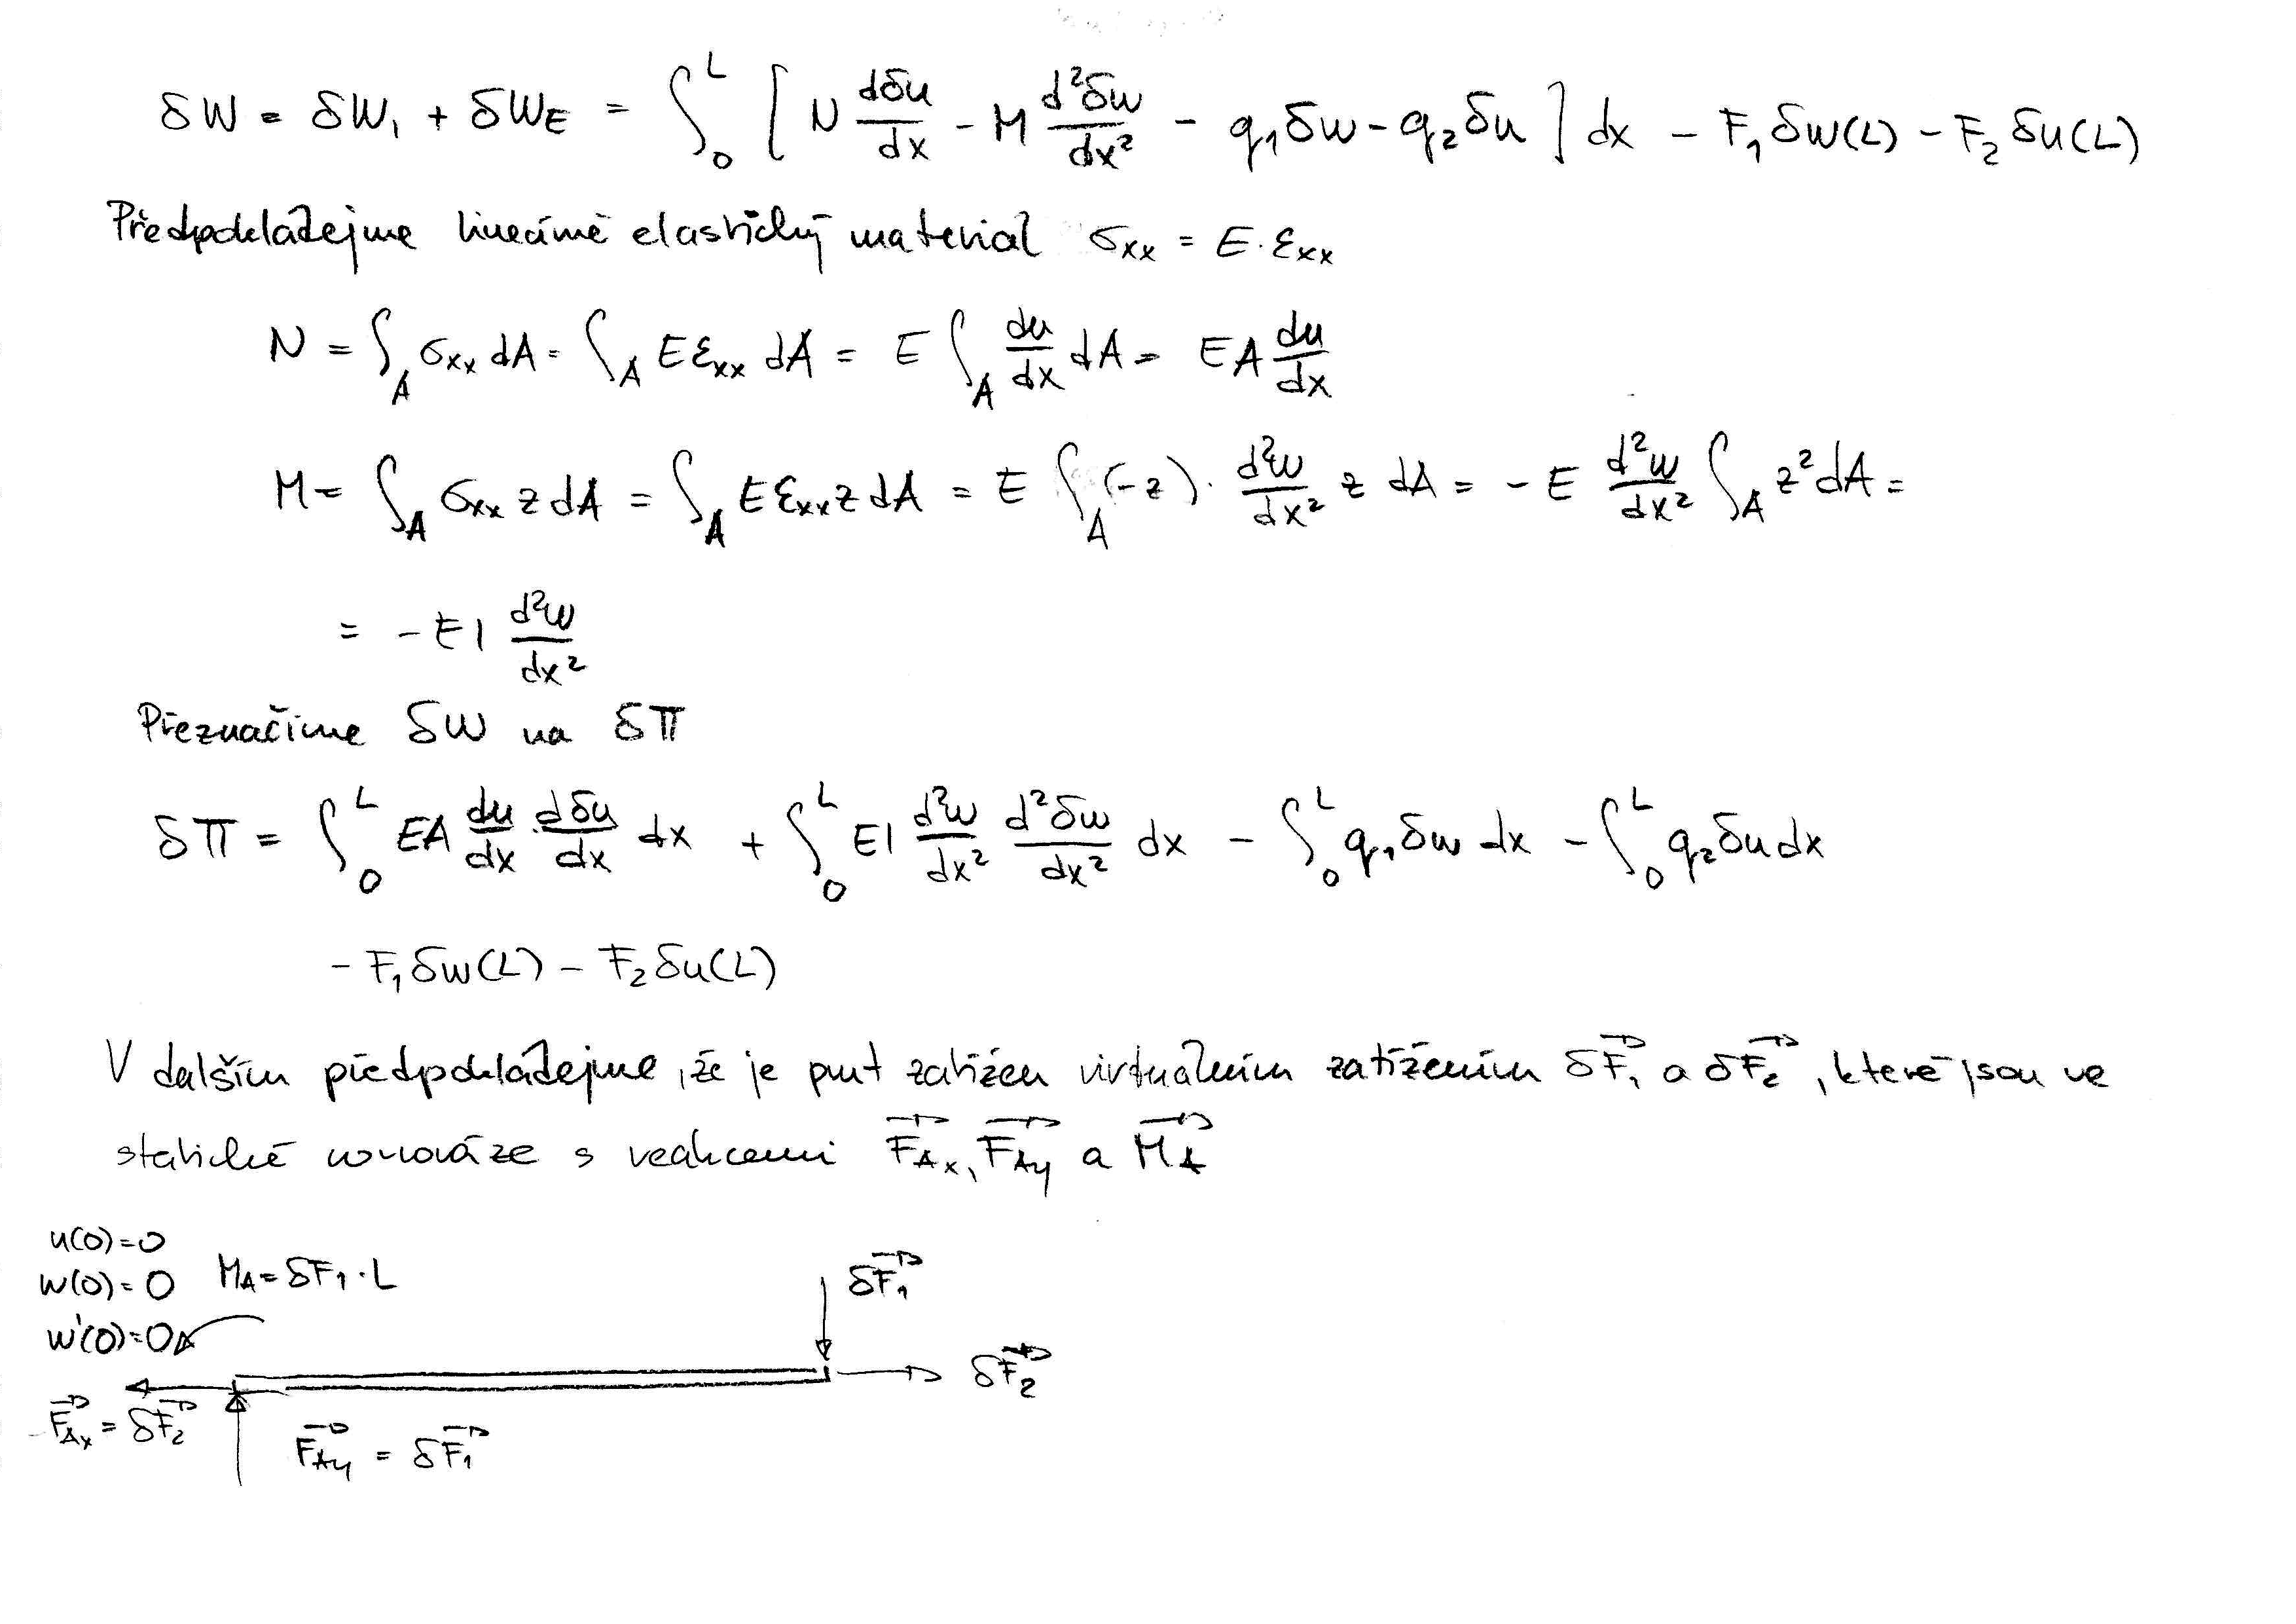 δW = δW₁ + δW_E = ∫₀ᴸ [ N dδu/dx - M d²δw/dx² - q₁δw - q₂δu ] dx - F₁δw(L) - F₂δu(L)
Předpokládejme lineárně elastický material σxx = E·εxx
N = ∫_A σxx dA = ∫_A Eεxx dA = E ∫_A du/dx dA = EA du/dx
M = ∫_A σxx z dA = ∫_A Eεxx z dA = E ∫_A (-z)· d²w/dx² z dA = - E d²w/dx² ∫_A z² dA =
= - EI d²w/dx²
Přeznačíme δW na δΠ
δΠ = ∫₀ᴸ EA du/dx · dδu/dx dx + ∫₀ᴸ EI d²w/dx² d²δw/dx² dx - ∫₀ᴸ q₁δw dx - ∫₀ᴸ q₂δu dx
- F₁δw(L) - F₂δu(L)
V dalším předpokládejme, že je prut zatížen virtuálním zatížením δF⃗₁ a δF⃗₂, které jsou ve
statické rovnováze s reakcemi F⃗Ax, F⃗Ay a M⃗A
u(0)=0
w(0)=0 MA = δF₁·L
w'(0)=0
δF⃗₁
δF⃗₂
F⃗Ax = δF⃗₂
F⃗Ay = δF⃗₁